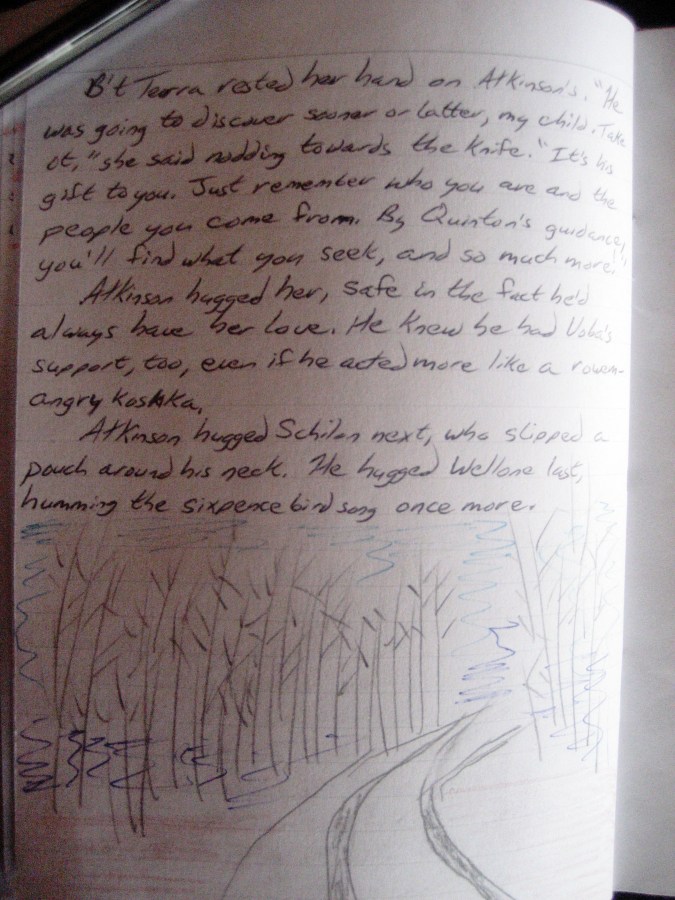 B't Terra rested her hand on Atkinson's. "He
was going to discover sooner or latter, my child. Take
it," she said nodding towards the knife. "It's his
gift to you. Just remember who you are and the
people you come from. By Quinton's guidance,
you'll find what you seek, and so much more."
Atkinson hugged her, safe in the fact he'd
always have her love. He knew he had Voba's
support, too, even if he acted more like a rowen-
angry koshka.
Atkinson hugged Schilon next, who slipped a
pouch around his neck. He hugged Wellone last,
humming the sixpence bird song once more.